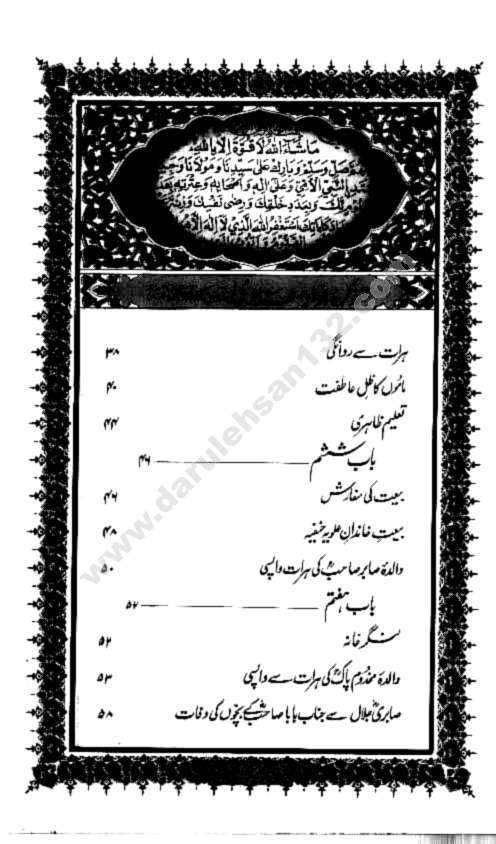 ماشاء الله لا قوة الا بالله
صل وسلم وبارك على سيدنا ومولانا
النبي الامي وعلى اله واصحابه وعترته بعدد
وبعدد خلقك ورضى نفسك وزنة
استغفر الله الذي لا اله الا
ہرات سے روانگی ۳۸
ماموں کا ظلِ عاطفت ۴۰
تعلیم ظاہری ۴۴
باب ششم ۴۶
بیعت کی سفارش ۴۶
بیعتِ خاندانِ علویہ حنفیہ ۴۸
والدۂ صابر صاحبؒ کی ہرات واپسی ۵۰
باب ہفتم ۵۲
لنگر خانہ ۵۲
والدۂ مخدوم پاکؒ کی ہرات سے واپسی ۵۳
صابریؒ جلال سے جناب بابا صاحبؒ کے بچّوں کی وفات ۵۸
www.darulehsan132.com